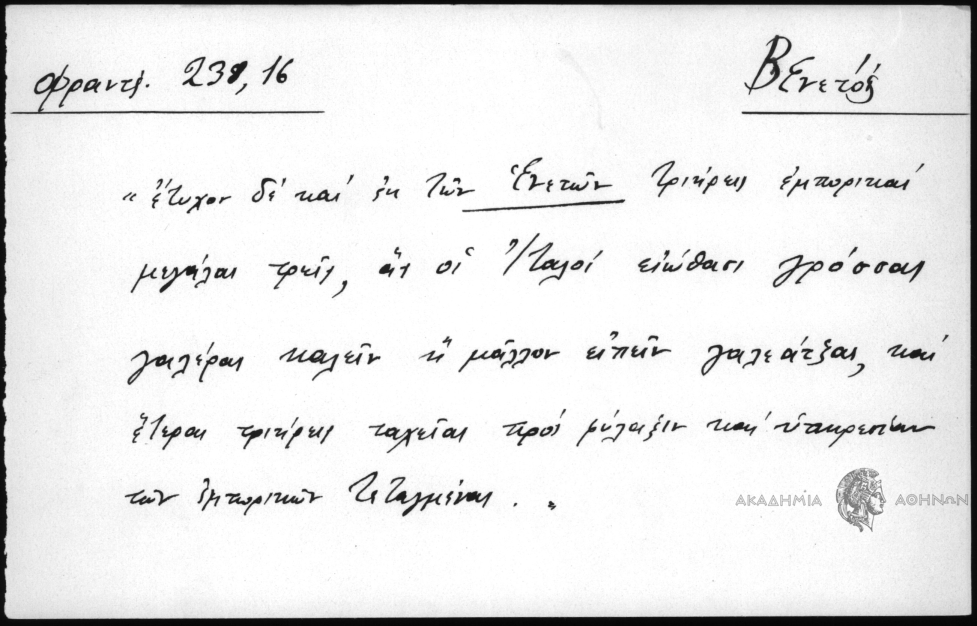 Φραντζ. 238, 16
Βενετός
"ἔτυχον δέ καί ἐκ τῶν Ἐνετῶν τριήρεις ἐμπορικαί
μεγάλαι τρεῖς, ἅς οἱ Ἰταλοί εἰώθασι γρόσσας
γαλέρας καλεῖν ἤ μᾶλλον εἰπεῖν γαλεάτζας, καί
ἕτεραι τριήρεις ταχεῖαι πρός φύλαξιν καί
τῶν ἐμπορικῶν τεταγμέναι. "
ΑΚΑΔΗΜΙΑ ΑΘΗΝΩΝ